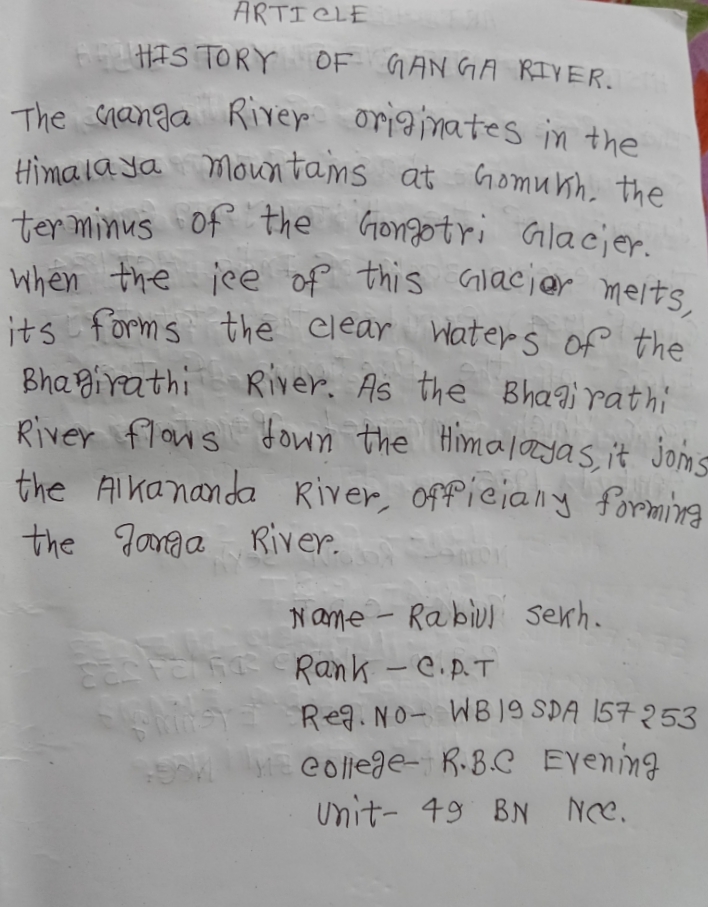 ARTICLE
HISTORY OF GANGA RIVER.
The Ganga River originates in the
Himalaya mountains at Gomukh, the
terminus of the Gongotri Glacier.
When the ice of this Glacier melts,
its forms the clear waters of the
Bhagirathi River. As the Bhagirathi
River flows down the Himalayas, it joins
the Alkananda River, officially forming
the Ganga River.
Name - Rabiul Sekh.
Rank - C.D.T
Reg. No - WB19SDA 157253
College - R.B.C Evening
Unit - 49 BN NCC.